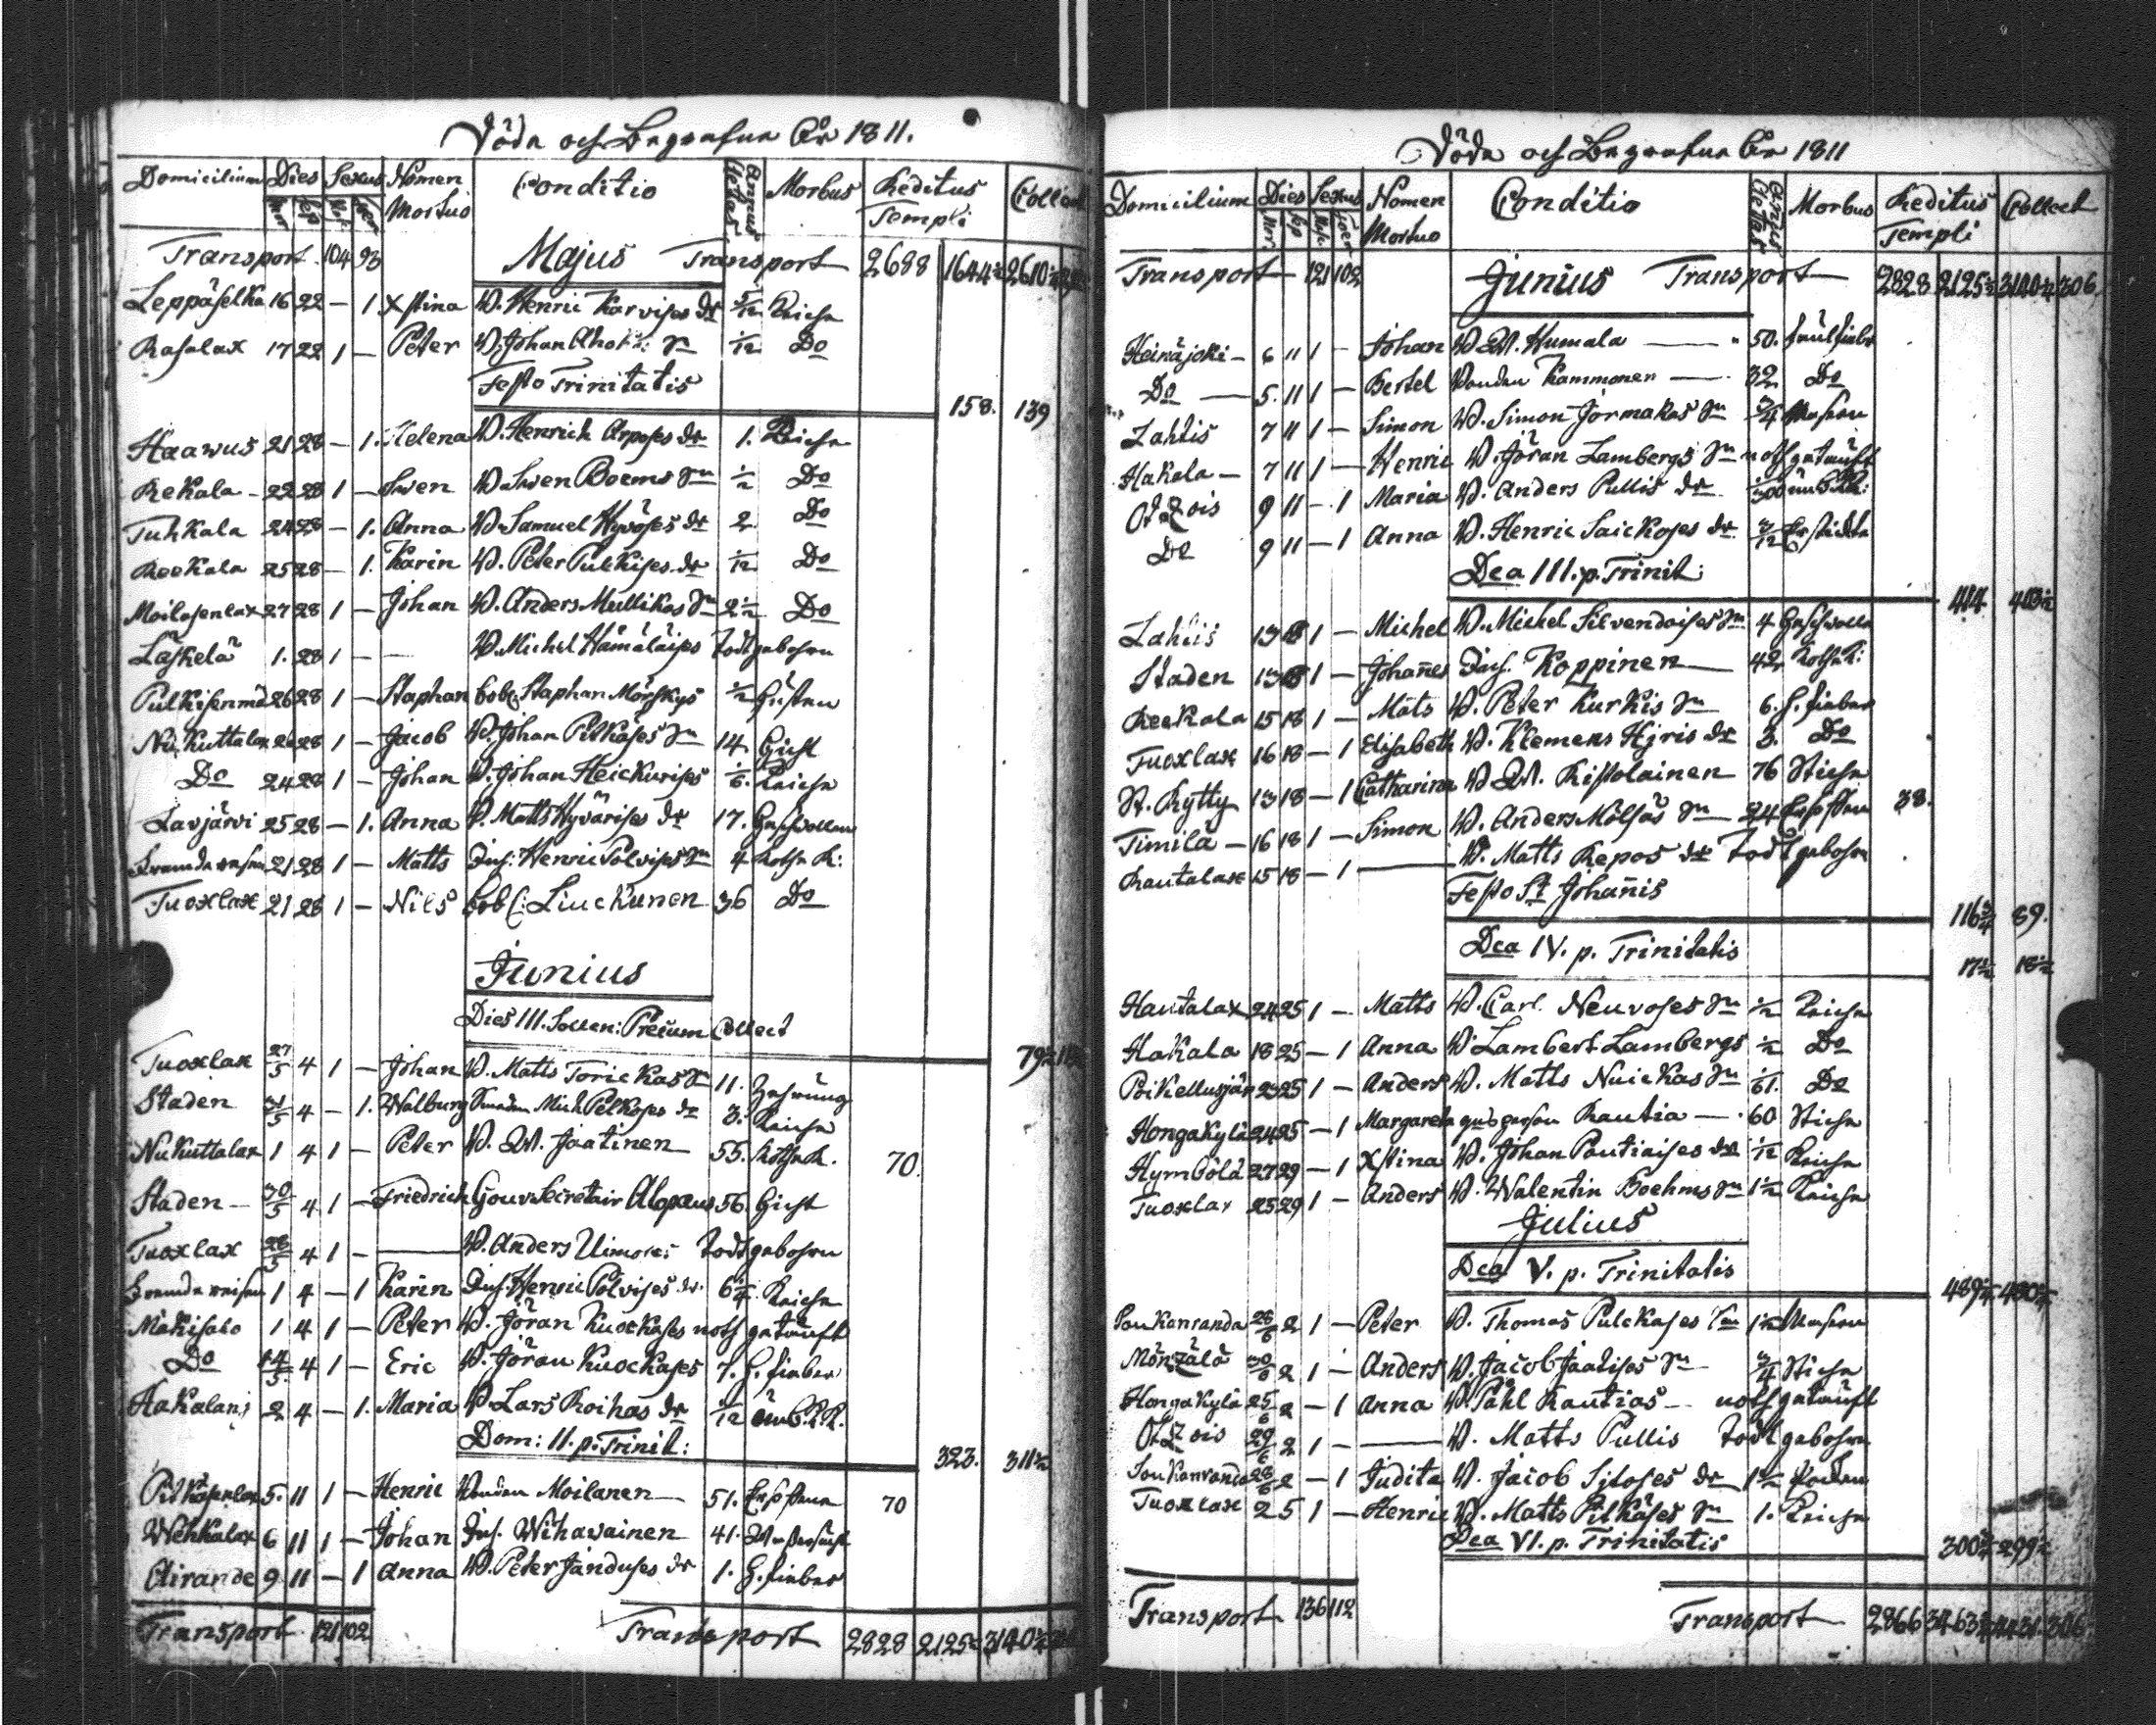 Döda och Begrafna År 1811.
Domicilium Dies Sexus Nomen Conditio Annus Morbus Reditus Collect
Mor Sep Mas Foem Mortuo Aetas Templi
Transport 104 93 Majus Transport 2688 1644½ 2610½
Leppäselkä 16 22 — 1 Xstina W. Henric Karvises dr 5/12 Reisn
Rasalax 17 22 1 — Peter W. Johan Aho sn 1/12 Do
Festo Trinitatis
158. 139
Haawus 21 28 — 1. Helena W. Henrich Arposes dr 1. Reisn
ReKala - 22 28 1 — Swen W. Swen Boems sn ½ Do
Tuhkala 24 28 — 1. Anna W. Samuel Hyvöses dr 2 Do
ReeKala 25 28 — 1. Karin W. Peter Pulkises dr 1/12 Do
Moilosenlax 27 28 1 — Johan W. Anders Mullikas sn 2½ Do
Läskelä 1. 28 1 — — W. Michel Hämäläises Todtgebohrn
Pulkisenmä 26 28 1 — Staphan Bob: Staphan Mörskys ½ Husten
NuKuttalax 26 28 1 — Jacob W. Johan Pitkäses sn 14. Gicht
Do 24 28 1 — Johan W. Johan Heickurises 1/6. Reisn
Lavjärvi 25 28 — 1. Anna W. Matts Hyvärises dr 17. Geschwollen
21 28 1 — Matts Inh: Henric Polvises sn 4 Rothe R:
Tuoxlax 21 28 1 — Nils Bob: LiucKunen 36 Do
Junius
Dies III. Sollen: Precum Collect
79½
Tuoxlax 27/5 4 1 — Johan W. Matts ToricKas sn 11. Zehrung
Staden 31/5 4 — 1. Walburg Mich Pelkoses dr 3. Reisn
NuKuttalax 1 4 1 — Peter W. W. Jaatinen 55. Rothe R. 70.
Staden — 30/5 4 1 — Friedrich Gouv: Secretair Alopaeus 56. Gicht
Tuoxlax 28/5 4 1 — W. Anders Uimoses Todtgebohrn
1 4 — 1 Karin Inh. Henric Polvises dr. 6¼ Reisn
Mäkisalo 1 4 1 — Peter W. Jöran Kuockases nothgetauft
Do 4 1 — Eric W. Jöran KuocKases 7. H. fieber
HaKalans 2 4 — 1. Maria W. Lars Roihas dr 1/12
Dom: II. p. Trinit:
323. 311½
Pitkäpenlax 5. 11 1 — Henric Moilanen — 51. 70
WehKalax 6 11 1 — Johan Inh. Wihavainen 41.
Airande 9 11 — 1 Anna W. Peter Janduses dr 1. H. fieber
Transport 121 102 Transport 2828 2125½ 3140½
Döda och Begrafna År 1811
Domicilium Dies Sexus Nomen Conditio Annus Morbus Reditus Collect
Mor. Sep Mas. Foem Mortuo Aetas Templi
Transport — 121 102 Junius Transport — 2828 2125½ 3140½ 306
Heinäjoki — 6 11 1 — Johan W. W. Humala — 50. faulfieber
Do — 5. 11 1 — Bertel Kammonen — 32 Do
Lahtis 7 11 1 — Simon W. Simon Jormakas sn ¾ Masern
Hakala — 7 11 1 — Henric W. Jöran Lambergs sn nothgetauft
Otzois 9 11 — 1 Maria W. Anders Pullis dr
Do 9 11 — 1 Anna W. Henric Saickoses dr 3/12 Erstickt
Dca III. p. Trinit:
414. 403½
Lahtis 13 18 1 — Michel W. Michel Silvendoises sn 4 Geschwolln
Staden 13 18 1 — Johanes Inh. Koppinen — 42 Rothe R:
ReeKala 15 18 1 — Mats W. Peter Kurkis sn 6. H. fieber
Tuoxlax 16 18 — 1 Elisabeth W. Klemens Hjris dr 3. Do
St. Kytty 13 18 — 1 Catharina W. W. Ristolainen 76 Stiche 38.
Timilä — 16 18 1 — Simon W. Anders Mölsäs sn 24
Rautalax 15 18 — 1 — W. Matts Repos dr Todtgebohrn
Festo St Johanis
116¾ 89.
Dca IV. p. Trinitatis
17½ 18½
Hautalax 24 25 1 — Matts W. Carl Neuvoses sn ½ Reisn
HaKala 18 25 — 1 Anna W. Lambert Lambergs ½ Do
Poikellusjär 23 25 1 — Anders W. Matts Nuickas sn 61. Do
Hongakylä 24 25 — 1 Margareta Rautia — 60 Stiche
Hymbölä 27 29 — 1 Xstina W. Johan Pautiaises dr 1/12 Reisn
Tuoxlax 25 29 1 — Anders W. Walentin Boehms sn 1½ Reisn
Julius
Dca V. p. Trinitatis
489¼ 480½
Soukanranda 28/6 2 1 — Peter W. Thomas Pulckases sn 1½ Masern
Mönzälä 30/6 2 1 — Anders W. Jacob Jaatises sn ¾ Stiche
Hongakylä 25/6 2 — 1 Anna W. Påhl Rautias — nothgetauft
Otzois 29/6 2 1 — W. Matts Pullis Todtgebohrn
Soukanranda 28/6 2 — 1 Judita W. Jacob Sjloses dr 1½ Pocken
Tuoxlax 2 5 1 — Henric W. Matts Pitkäses sn 1. Reisn
Dca VI. p. Trinitatis
300¾ 299½
Transport 136 112 Transport 2866 3463¾ 4431. 306